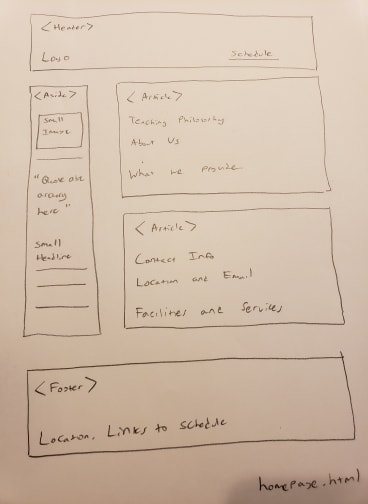 <Header>
Logo
Schedule
<Aside>
Small
Image
"Quote abt
archery
here"
Small
Headline
<Article>
Teaching Philosophy
About Us
What we provide
<Article>
Contact Info
Location and Email
Facilities and Services
<Footer>
Location, Links to Schedule
homepage.html